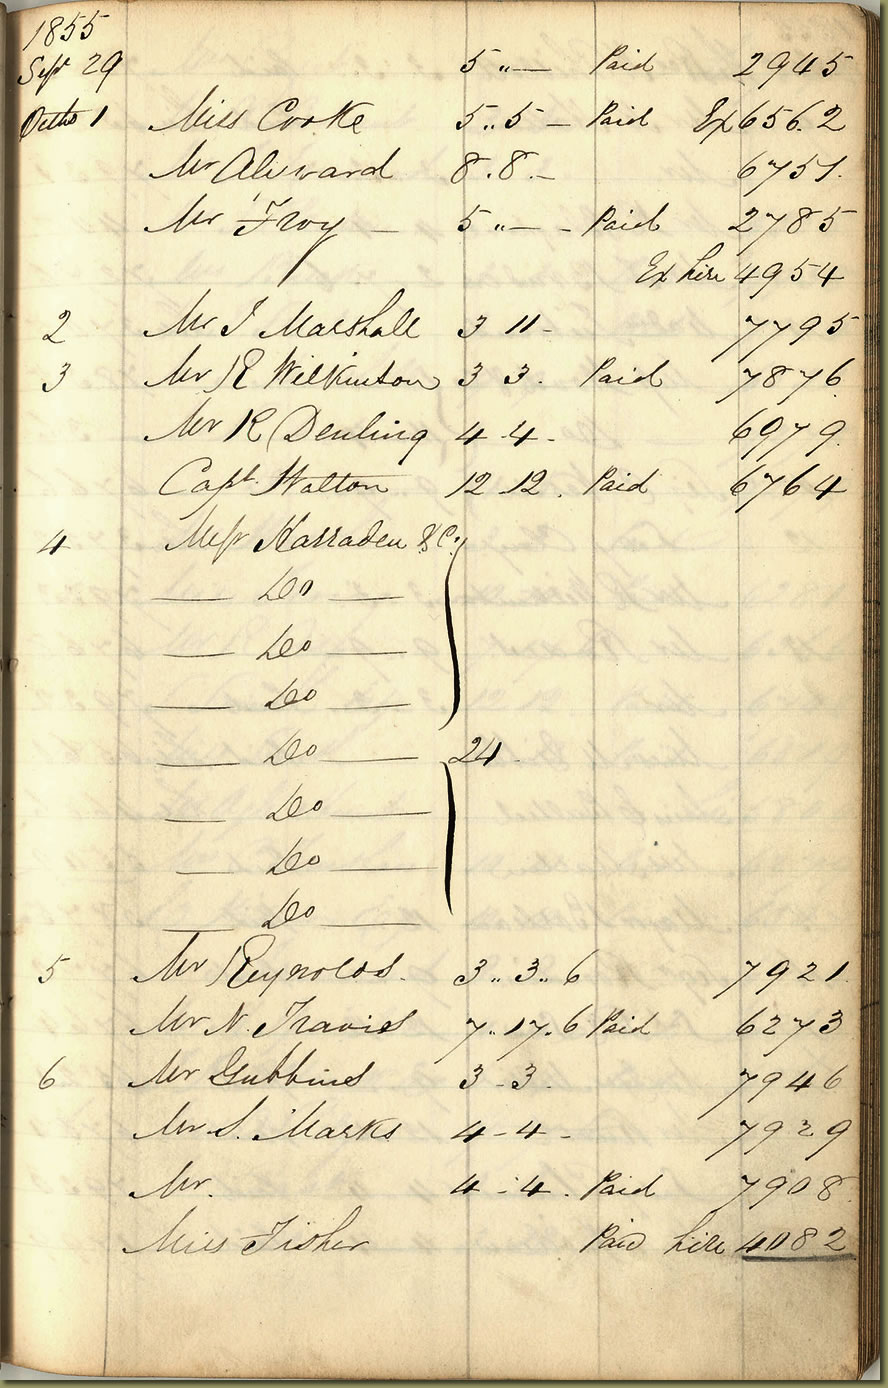 1855
Sept 29 5 ,, — Paid 2945
Octbr 1 Miss Cooke 5 ,, 5 — Paid Ex 6562
Mr Alward 8 . 8 . — 6751
Mr Troy — 5 ,, — - Paid 2785
Ex hire 4954
2 Mr J Marshall 3 11 - 7795
3 Mr R Wilkinson 3 3 . Paid 7876
Mr R 4 - 4 - 6979
Capt. Walton 12 - 12 . Paid 6764
4 Messr Harraden & Co.
— Do —
— Do —
— Do —
— Do — 24 -
— Do —
— Do —
— Do —
5 Mr Reynolds . 3 ,, 3 ,, 6 7921
Mr N. Travis 7 ,, 17 ,, 6 Paid 6273
6 Mr Gubbins 3 - 3 . 7946
Mr S. Marks 4 - 4 - 7929
Mr. 4 - 4 . Paid 7908
Miss Fisher Paid hire 4082